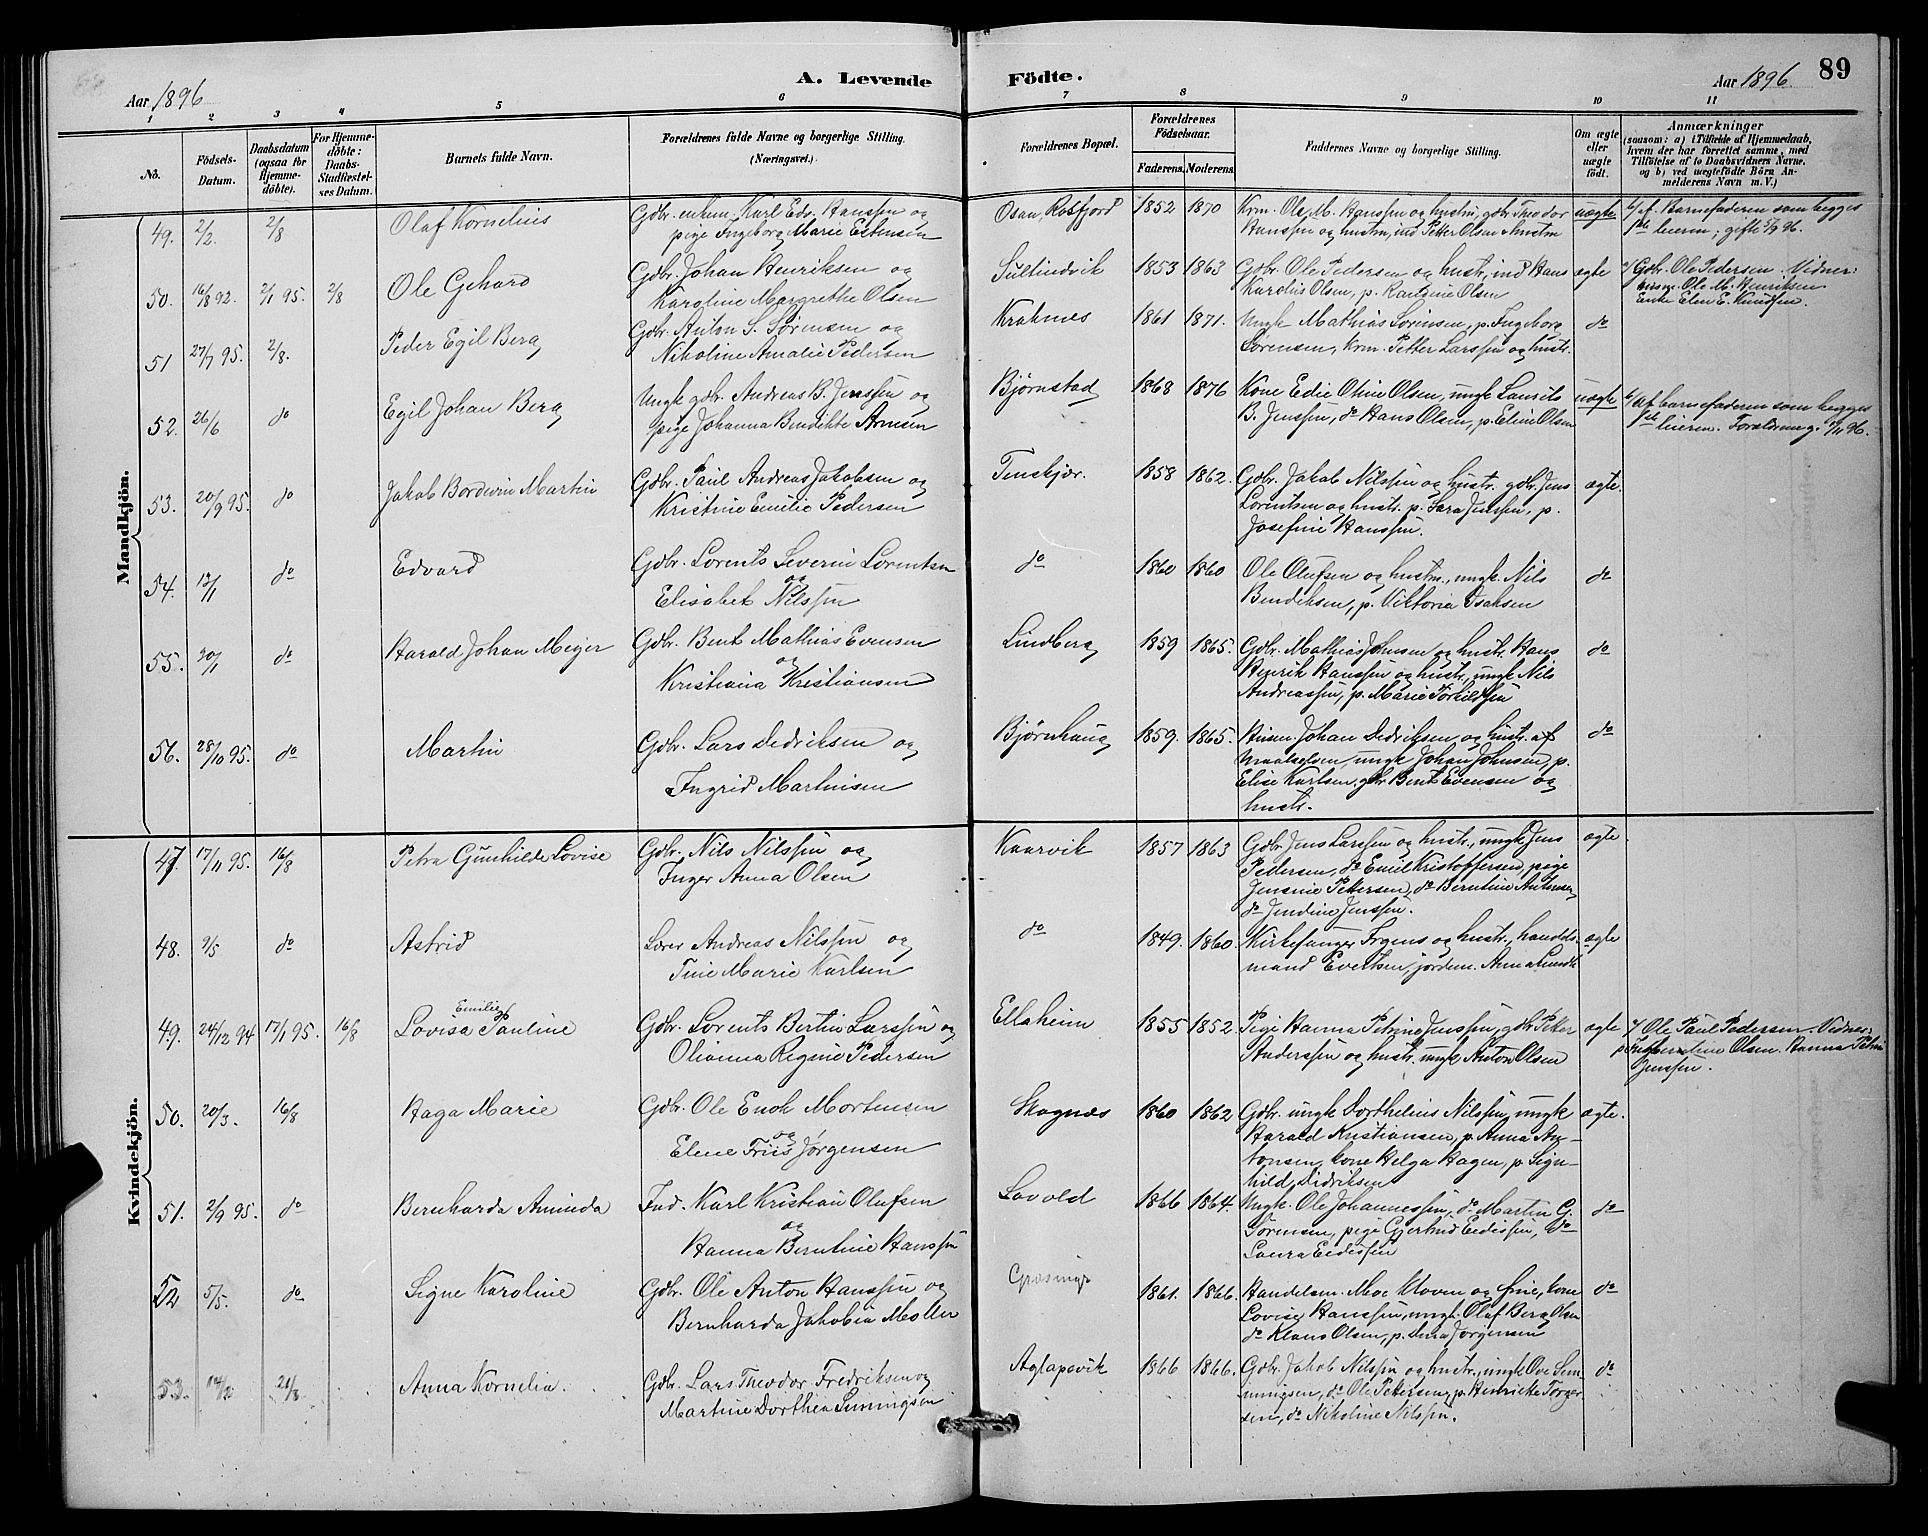 Aar 1896
A. Levende
Födte.
Aar 1896
89
1 2 3 4 5 6 7 8 9 10 11
No.
Födsels-
Datum.
Daabsdatum
(ogsaa for
Hjemme-
döbte).
For Hjemme-
döbte:
Daabs-
Stadfæstel-
ses Datum.
Barnets fulde Navn.
Forældrenes fulde Navne og borgerlige Stilling.
(Næringsvei.)
Forældrenes Bopæl.
Forældrenes
Födselsaar.
Faderens. Moderens.
Faddernes Navne og borgerlige Stilling.
Om ægte
eller
uægte
födt.
Anmærkninger
(saasom: a) i Tilfælde af Hjemmedaab,
hvem der har forrettet samme, med
Tilföielse af to Daabsvidners Navne,
og b) ved uægtefödte Börn An-
melderens Navn m. V.)
Mandkjön.
49. 2/2. 2/8 Olaf Kornelius
Gdbr. enkem. Karl Edv. Hanssen og
pige Ingeborg Marie Estensen
Osan, Rossfjord 1852 1870
Krm. Ole M. Hanssen og hustru, gdbr. Theodor
Hanssen og hustru, ind. Petter Olsen & hustru
uægte
b/ af Barnefaderen som begges
1ste leierm; gifte 5/9 96.
50. 16/8 92. 2/1 95. 2/8 Ole Gehard
Gdbr. Johan Henriksen og
Karoline Margrethe Olsen
Sultindvik 1853 1863
Gdbr. Ole Pedersen og hustr, ind Hans
Kardius Olsen, p. Rantine Olsen
ægte
a/ Gdbr. Ole Pedersen. Vidner:
Ole M. Henriksen
Enke Elen E. Knudsen.
51 27/7 95. 2/8. Peder Egil Berg
Gdbr. Anton S. Sørensen og
Nikoline Amalie Pedersen
Kraknes 1861 1871.
Ungk Mathias Sørensen, p. Ingeborg
Sørensen, krm. Petter Larssen og hustr.
do
52. 26/6 do Egil Johan Berg
Ungk gdbr. Andreas B. Jenssen og
pige Johanna Bendikte Arnesen
Bjørnstad 1868 1876
Kone Edie Oline Olsen, ungk Laurits
B. Jenssen, do Hans Olsen, p. Eline Olsen
uægte
b/ af barnefaderen som begges
1ste leierm.
53. 20/9 95. do Jakob Bordevin Martin
Gdbr. Paul Andreas Jakobsen og
Kristine Emilie Pedersen
Tennskjær. 1858 1862.
Gdbr. Jakob Nilssen og hustr. gdbr. Jens
Lorentsen og hustr. p. Sara Jenssen, p.
Josefine Hanssen.
ægte.
54. 12/1 do Edvard
Gdbr. Lorents Severin Lorentsen
og
Elisabet Nilssen
do 1860 1860
Ole Olufsen og hustru, ungk. Nils
Bendiksen, p. Viktoria Isaksen
do
55. 20/1 do Harald Johan Meyer
Gdbr. Bent Mathias Evensen
og
Kristiana Kristiansen
Lindberg 1859 1865.
Gdbr. Mathias Johnsen og hustr. Hans
Henrik Hanssen og hustr, ungk Nils
Andreassen, p. Marie Torkildsen
do
56. 28/10 95. do Martin
Gdbr. Lars Dedriksen og
Ingrid Martinisen
Bjørnhaug 1859. 1865.
Johan Dedriksen og hustr. af
Maalselven, ungk Johan Johnsen, p.
Elise Karlsen, gbr. Bent Evensen og
hustr.
do
Kvindekjön.
47. 17/11 95. 16/8 Petra Gunhilde Lovise
Gdbr. Nils Nilssen og
Inger Anna Olsen
Kaarvik 1857 1863
Gdbr. Jens Larssen og hustr., ungk Jens
Pedersen, do Emil Kristoffersen, pige
Jensine Pettersen, do Berntine Antonsen,
do Jendine Jenssen.
ægte.
48. 9/5 do Astrid
Lærer Andreas Nilssen og
Tine Marie Karlsen
do 1849. 1860.
Kirkesanger Irgens og hustr, handels-
mand Evertsen, jordem. Anna
ægte
49. 24/12 94 17/1 95. 16/8
Emilie
Lovisa Pauline
Gdbr. Lorents Bertin Larssen og
Olianna Regine Pedersen
Ellaheim 1855 1852.
Pige Hanna Petrine Jenssen, gdbr Peter
Anderssen og hustr. ungk Anton Olsen
ægte
a/ Ole Paul Pedersen. Vidner:
Olsen. Hanna Petrine
Jenssen.
50. 20/3. 16/8 Haga Marie
Gdbr. Ole Enok Mortensen
og
Elene Friis Jørgensen
Skognes 1860 1862
Gdbr. ungk Dorthelius Nilssen, ungk
Harald Kristiansen, p. Anna An-
tonsen, kone Helga Hagen, p. Sign-
hild Didriksen
ægte.
51. 2/9 95. do Bernharda Aminda
Ind. Karl Kristian Olufsen
og
Hanna Berntine Hanssen
Lavold 1866 1864.
Ungk. Ole Johannessen, do Martin G.
Sørensen, pige Gjertrud Eedissen, do
Laura Eedissen
do
52 5/5. do Signe Karoline
Gdbr. Ole Anton Hanssen og
Bernharda Jakobia Moller
Græsmyr 1861. 1866.
Handelsm. Moe Kloven og frue, kone
Lovise Hanssen, ungk. Olaf Berg Olsen
do Klaus Olsen, p. Dena Jørgensen
do
53. 14/2 21/8 Anna Kornelia.
Gdbr. Lars Theodor Fredriksen og
Martine Dorthea Simmingsen
Aglapsvik 1866 1866.
Gdbr. Jakob Nilssen og hustr., ungk Ove Sem-
mingsen, do Ole Pettersen, p. Henriette Torger-
sen, do Nikoline Nilssen.
do